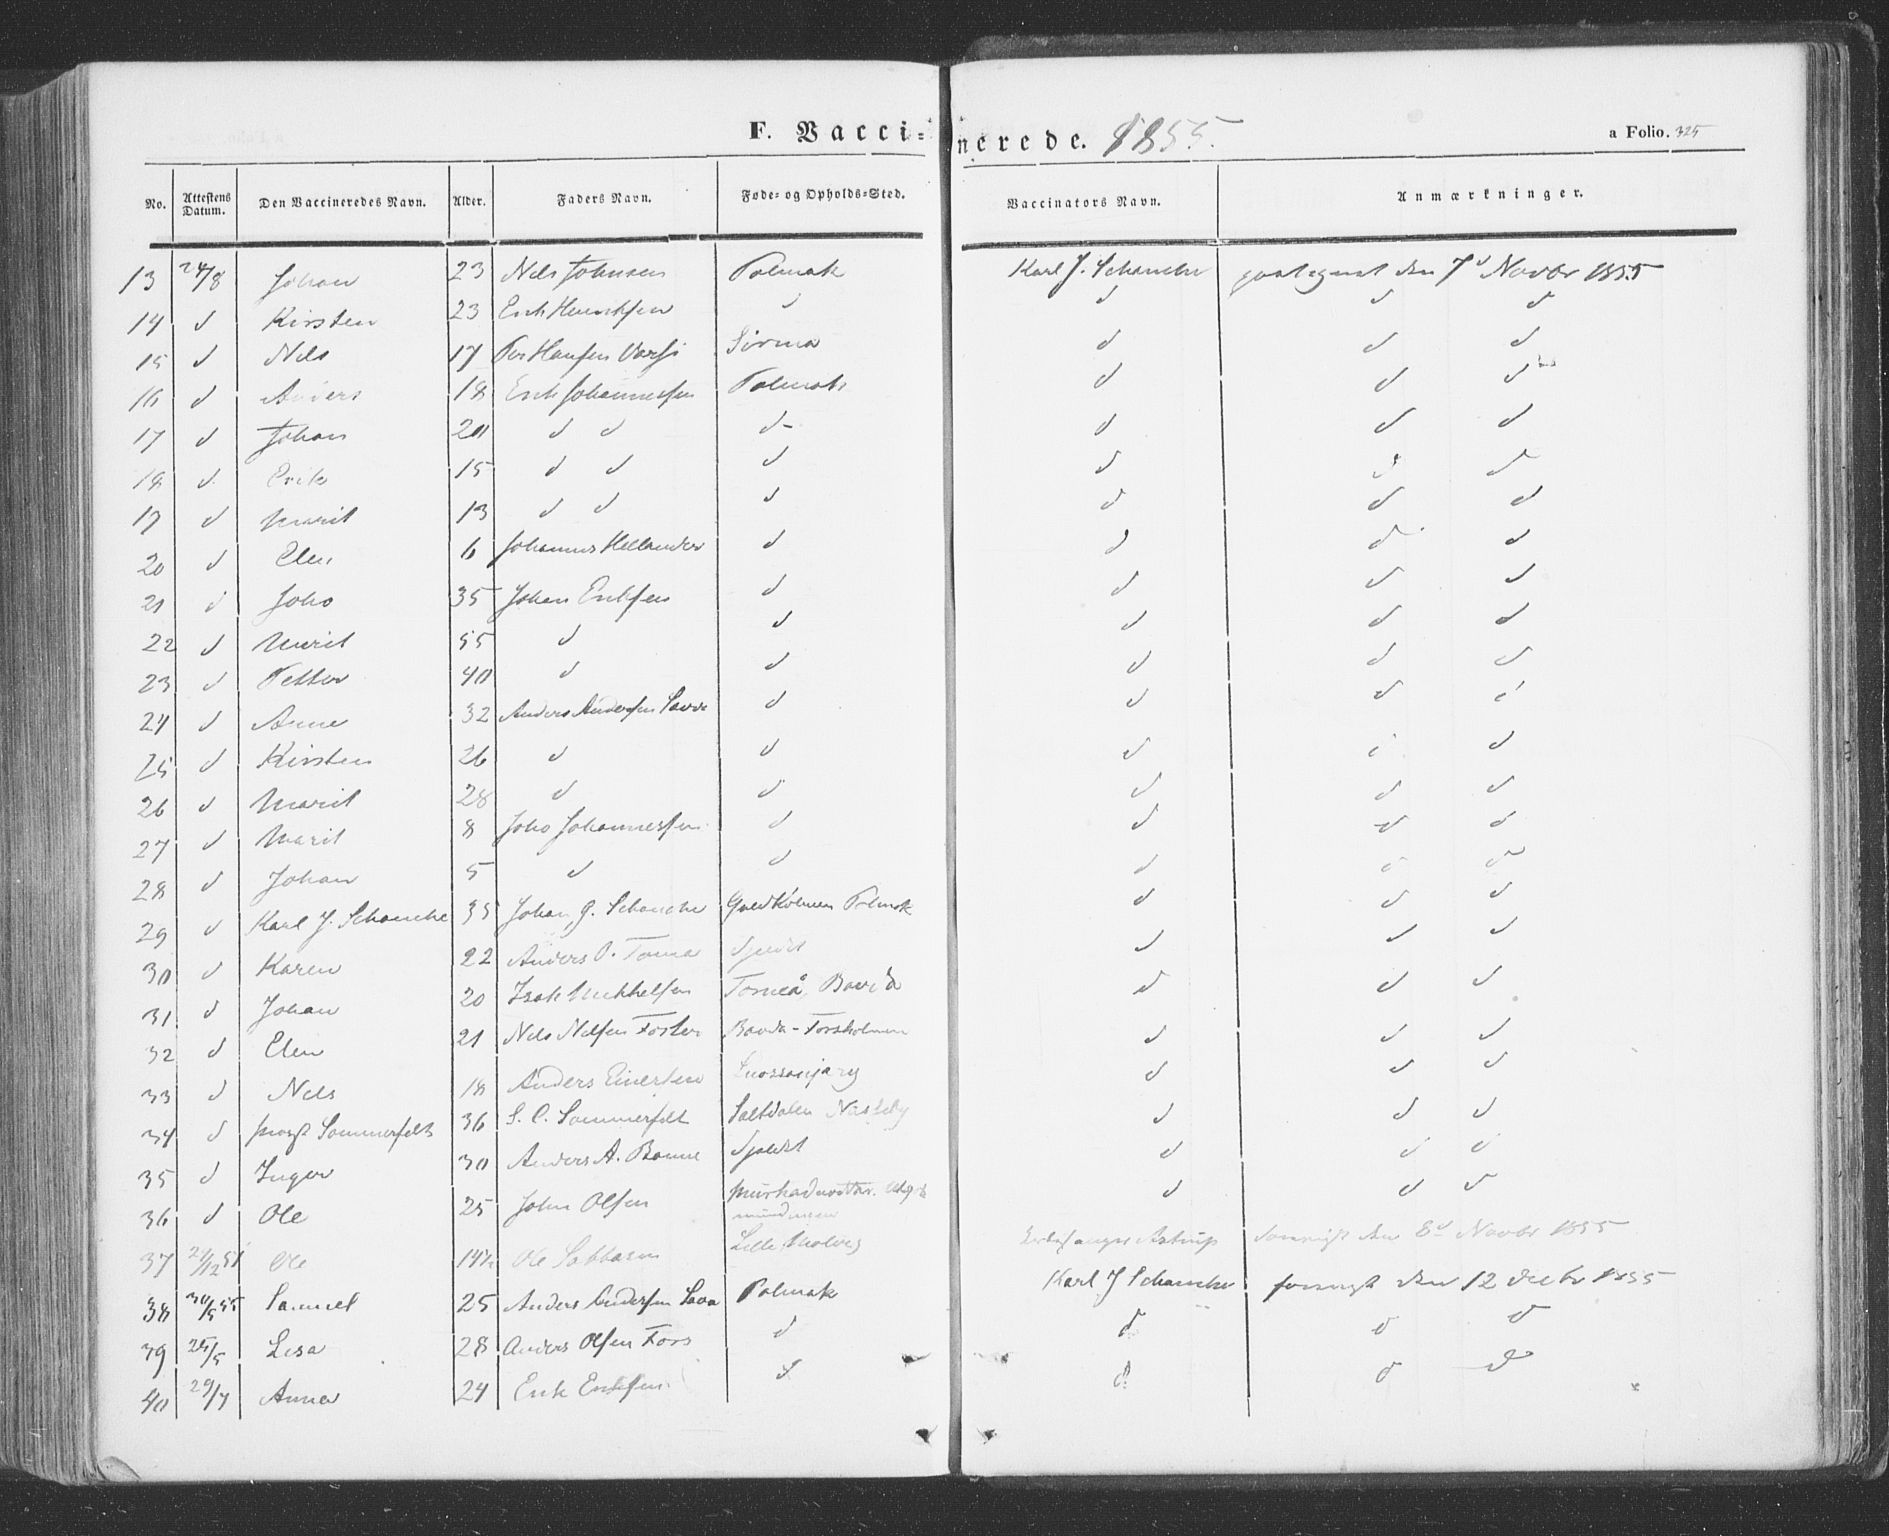 F. Vaccinerede. 1855.
a Folio. 325
No. Attestens Datum. Den Vaccineredes Navn. Alder. Faders Navn. Føde- og Opholds-Sted. Vaccinators Navn. Anmærkninger.
13 24/8 Johan 23 Nels Johnsen Polmak Karl J. Schanche den 7d Novbr 1855
14 d Kirsten 23 Erik Henriksen d d d d
15 d Nels 17 Per Hansen Sirma d d d
16 d Anders 18 Erik Johannessen Polmak d d d
17 d Johan 20 d d d d d d
18 d Erik 15 d d d d d d
19 d Marit 13 d d d d d d
20 d Elen 6 Johannes Hellander d d d d
21 d Joho 35 Johan Eriksen d d d d
22 d Marit 55 d d d d d
23 d Petter 40 d d d d d
24 d Anne 32 Anders Andersen d d d d
25 d Kirsten 26 d d d d d
26 d Marit 28 d d d d d
27 d Marit 8 Joho Johannessen d d d d
28 d Johan 5 d d d d d
29 d Karl J. Schanche 35 Johan G. Schanche Polmak d d d
30 d Karen 22 Anders O. d d d
31 d Johan 20 Isak Mikkelsen Torneå, d d d
32 d Elen 21 Nels Nelsen d d d
33 d Nels 18 Anders d d d
34 d Sommerfeldt 36 S. C. Sommerfeldt Saltdalen Næsseby d d d
35 d Inger 30 Anders A. Bonne d d d
36 d Ole 25 John Olsen d d d
37 Ole 14½ Ole Sabbasen Lille Astrup den 8d Novbr 1855
38 30/5 55 Samuel 25 Anders Andersen Polmak Karl J Schanche den 12 Decbr 1855
39 25/5 Lisa 28 Anders Olsen Fors d d d d
40 29/7 Anna 24 Erik Eriksen d d d d